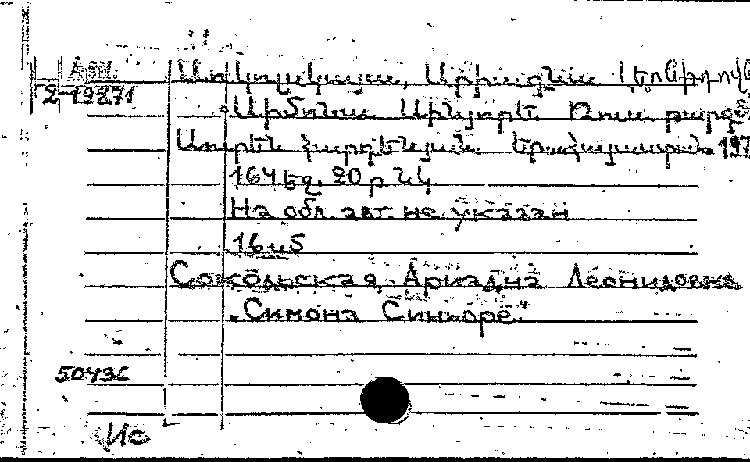 Арм.
2-19871
Սոկոլսկայա, Արիադնա Լեոնիդովն
"Սիմոնա Սինյորե". Ռուս. թարգ.
Սուրեն Հարդենյան. Երևան,
164 էջ. 20 թ. նկ.
На обл. авт. не указан
16 и 5
Сокольская, Ариадна Леонидовна
„Симона Синьоре"
50436